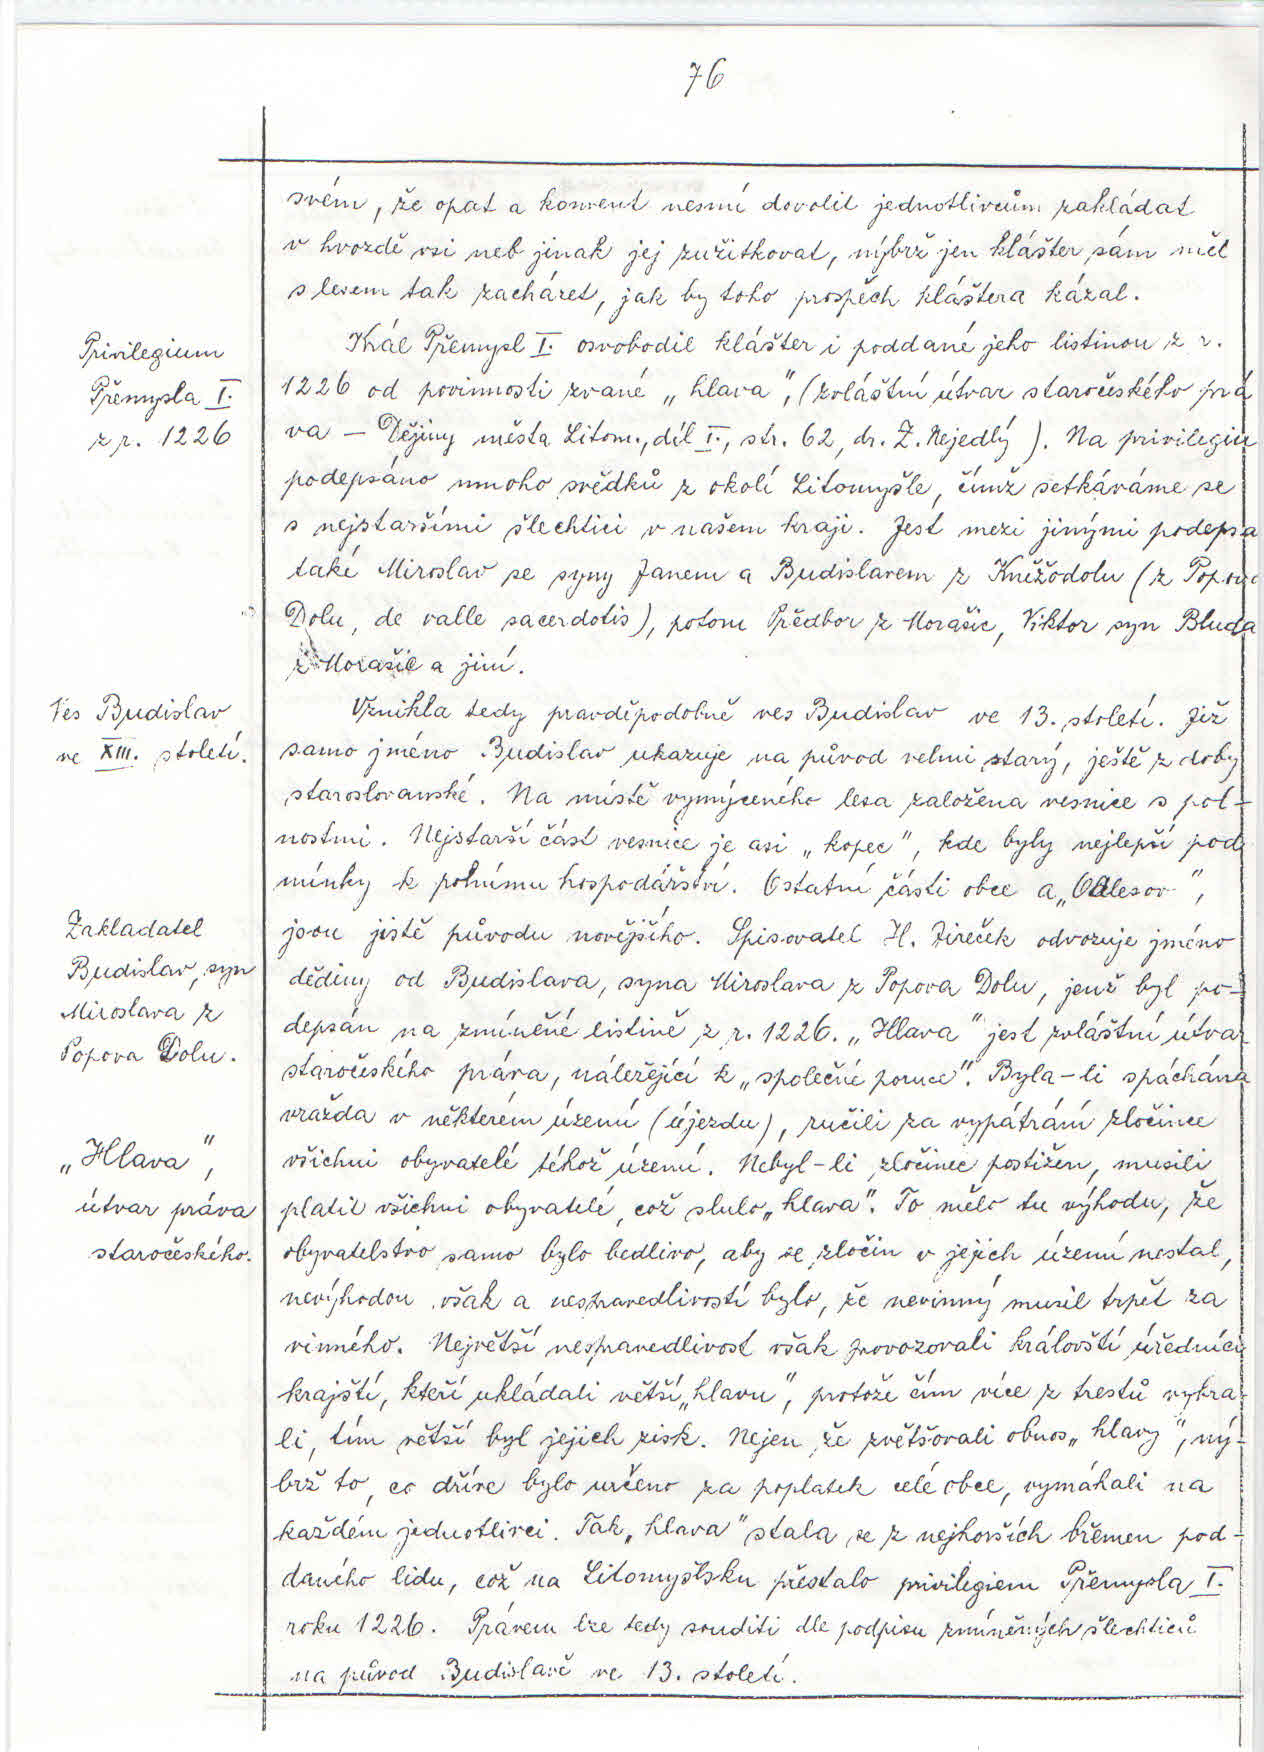 76
svém, že opat a konvent nesmí dovolil jednotlivcům zakládat
v hvozdě vsi neb jinak jej zužitkovat, nýbrž jen klášter sám měl
s lesem tak zacházet, jak by toho prospěch kláštera kázal.
Privilegium
Přemysla I.
z r. 1226
Král Přemysl I. osvobodil klášter i poddané jeho listinou z r.
1226 od povinnosti zvané „hlava", (zvláštní útvar staročeského prá
va – Dějiny města Litom., díl I., str. 62, dr. Z. Nejedlý). Na privilegiu
podepsáno mnoho svědků z okolí Litomyšle, čímž setkáváme se
s nejstaršími šlechtici v našem kraji. Jest mezi jinými podepsa
také Miroslav se syny Janem a Budislavem z Kněžodolu (z Popova
Dolu, de valle sacerdotis), potom Předbor z Morašic, Viktor syn Bluda
z Morašic a jiní.
Ves Budislav
ve XIII. století.
Vznikla tedy pravděpodobně ves Budislav ve 13. století. Již
samo jméno Budislav ukazuje na původ velmi starý, ještě z doby
staroslovanské. Na místě vymýceného lesa založena vesnice s pol-
nostmi. Nejstarší část vesnice je asi „kopec", kde byly nejlepší pod
mínky k polnímu hospodářství. Ostatní části obce a „Odlesov",
jsou jistě původu novějšího. Spisovatel H. Jireček odvozuje jméno
dědiny od Budislava, syna Miroslava z Popova Dolu, jenž byl po-
depsán na zmíněné listině z r. 1226. „Hlava" jest zvláštní útvar
staročeského práva, náležející k „společné poruce". Byla-li spáchána
vražda v některém území (újezdu), ručili za vypátrání zločince
všichni obyvatelé téhož území. Nebyl-li zločinec postižen, musili
platit všichni obyvatelé, což slulo „hlava". To mělo tu výhodu, že
obyvatelstvo samo bylo bedlivo, aby se zločin v jejich území nestal,
nevýhodou však a nespravedlivostí bylo, že nevinný musil trpět za
vinného. Největší nespravedlivost však provozovali královští úředníci
krajští, kteří ukládali větší „hlavu", protože čím více z trestů vybra-
li, tím větší byl jejich zisk. Nejen že zvětšovali obnos „hlavy", ný-
brž to, co dříve bylo určeno za poplatek celé obce, vymáhali na
každém jednotlivci. Tak „hlava" stala se z nejhorších břemen pod-
daného lidu, což na Litomyšlsku přestalo privilegiem Přemysla I.
roku 1226. Právem lze tedy souditi dle podpisu zmíněných šlechticů
na původ Budislavě ve 13. století.
Zakladatel
Budislav, syn
Miroslava z
Popova Dolu.
„Hlava",
útvar práva
staročeského.